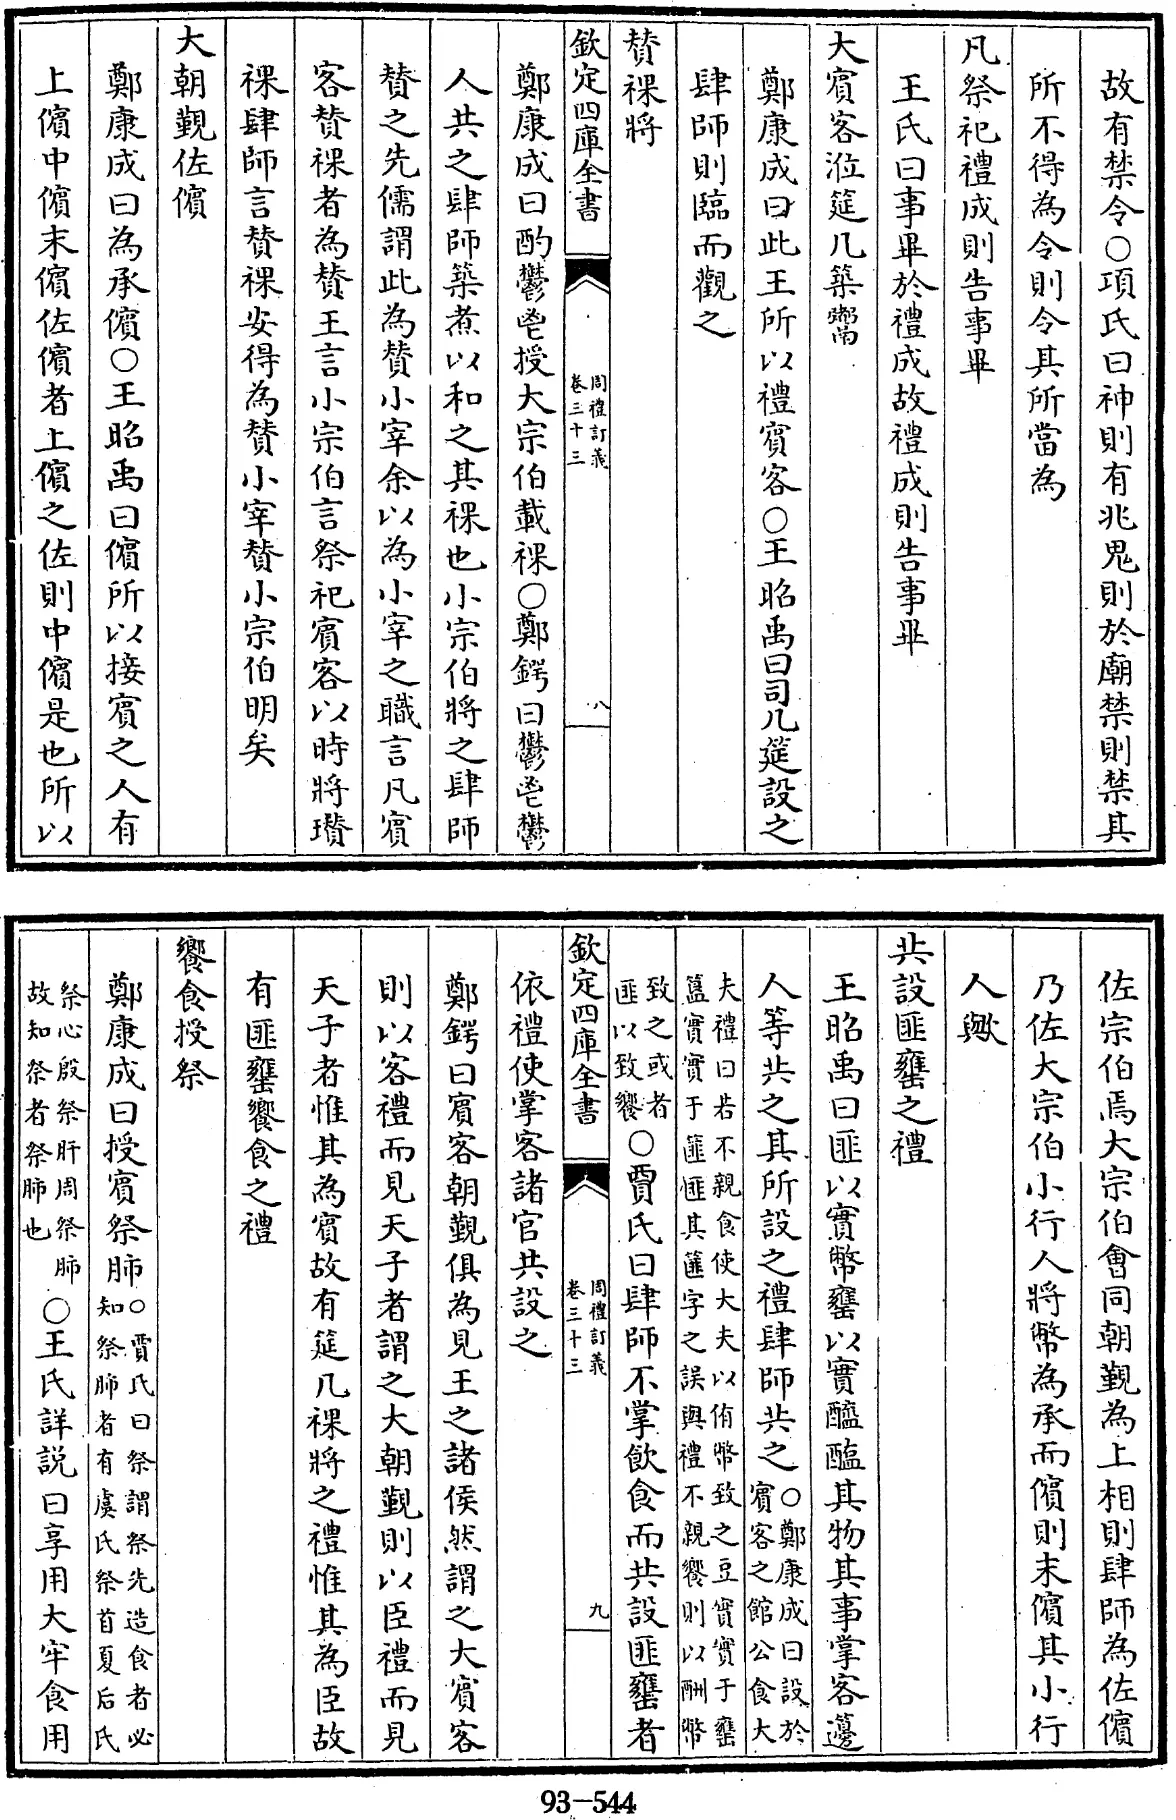 故有禁令○項氏曰神則有兆鬼則於廟禁則禁其
所不得為令則令其所當為
凡祭祀禮成則告事畢
王氏曰事畢於禮成故禮成則告事畢
大賓客涖筵几築鬻
鄭康成曰此王所以禮賓客○王昭禹曰司几筵設之
肆師則臨而觀之
贊祼將
欽定四庫全書
周禮訂義
卷三十三
八
鄭康成曰酌鬱鬯授大宗伯載祼○鄭鍔曰鬱鬯鬱
人共之肆師築煮以和之其祼也小宗伯將之肆師
贊之先儒謂此為贊小宰余以為小宰之職言凡賓
客贊祼者為贊王言小宗伯言祭祀賓客以時將瓚
祼肆師言贊祼安得為贊小宰贊小宗伯明矣
大朝覲佐儐
鄭康成曰為承儐○王昭禹曰儐所以接賓之人有
上儐中儐末儐佐儐者上儐之佐則中儐是也所以
佐宗伯焉大宗伯會同朝覲為上相則肆師為佐儐
乃佐大宗伯小行人將幣為承而儐則末儐其小行
人歟
共設匪罋之禮
王昭禹曰匪以實幣罋以實醯醢其物其事掌客籩
人等共之其所設之禮肆師共之○鄭康成曰設於
賓客之館公食大
夫禮曰若不親食使大夫以侑幣致之豆實實于罋
簋實實于篚匪其篚字之誤與禮不親饗則以酬幣
致之或者
匪以致饗○賈氏曰肆師不掌飲食而共設匪罋者
欽定四庫全書
周禮訂義
卷三十三
九
依禮使掌客諸官共設之
鄭鍔曰賓客朝覲俱為見王之諸侯然謂之大賓客
則以客禮而見天子者謂之大朝覲則以臣禮而見
天子者惟其為賓故有筵几祼將之禮惟其為臣故
有匪罋饗食之禮
饗食授祭
鄭康成曰授賓祭肺○賈氏曰祭謂祭先造食者必
知祭肺者有虞氏祭首夏后氏
祭心殷祭肝周祭肺
故知祭者祭肺也○王氏詳説曰享用大牢食用
93-544